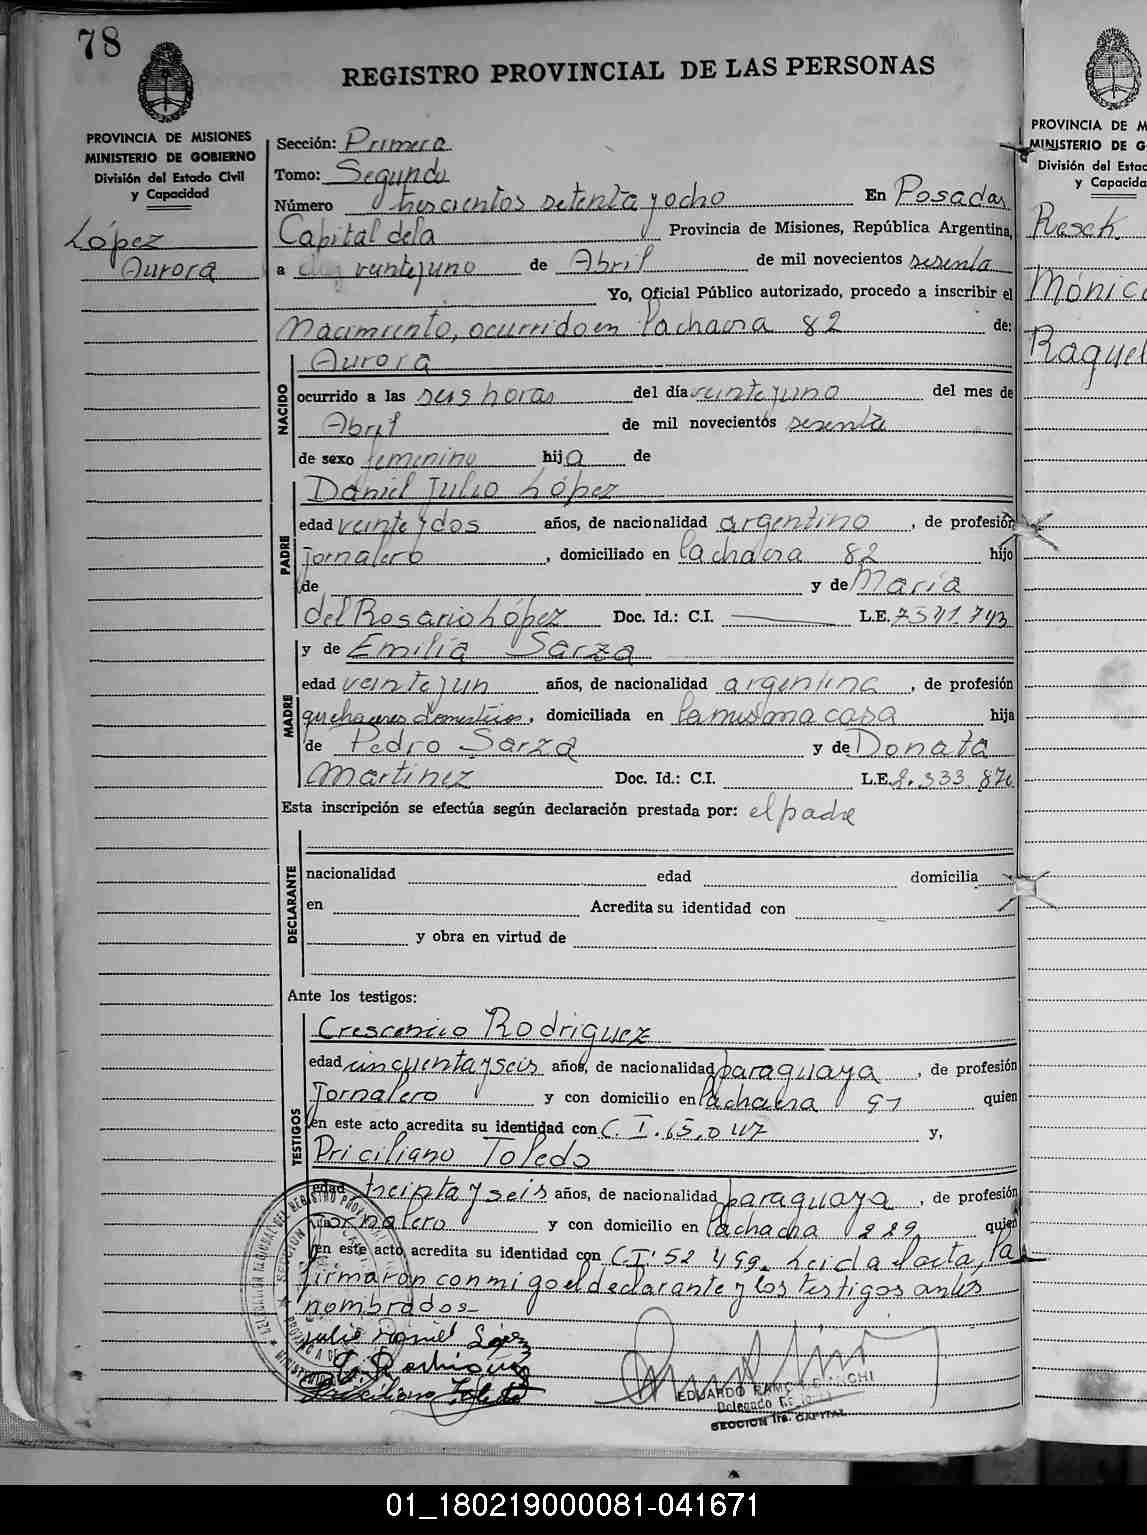 78
REGISTRO PROVINCIAL DE LAS PERSONAS
PROVINCIA DE MISIONES
MINISTERIO DE GOBIERNO
División del Estado Civil
y Capacidad
López
Aurora
Sección: Primera
Tomo: Segundo
Número trescientos setenta y ocho En Posadas
Capital de la Provincia de Misiones, República Argentina,
a veintejuno de Abril de mil novecientos sesenta
Yo, Oficial Público autorizado, procedo a inscribir el
Nacimiento, ocurrido en la chacra 82 de:
NACIDO
Aurora
ocurrido a las seis horas del día veintejuno del mes de
Abril de mil novecientos sesenta
de sexo femenino hija de
PADRE
Daniel Julio López
edad veinte y dos años, de nacionalidad argentino, de profesión
Jornalero, domiciliado en la chacra 82 hijo
de y de María
del Rosario López Doc. Id.: C.I. L.E. 7541.743
MADRE
y de Emilia Sarza
edad veinte y un años, de nacionalidad argentina, de profesión
quehaceres domésticos, domiciliada en la misma casa hija
de Pedro Sarza y de Donata
Martinez Doc. Id.: C.I. L.E. 2.333.870
Esta inscripción se efectúa según declaración prestada por: el padre
DECLARANTE
nacionalidad edad domicilia
en Acredita su identidad con
y obra en virtud de
Ante los testigos:
TESTIGOS
Crescencio Rodriguez
edad cincuenta y seis años, de nacionalidad paraguaya, de profesión
Jornalero y con domicilio en la chacra 97 quien
en este acto acredita su identidad con C. I. 65.047 y,
Priciliano Toledo
edad treinta y seis años, de nacionalidad paraguaya, de profesión
Jornalero y con domicilio en la chacra 229 quien
en este acto acredita su identidad con C.I. 52.499. Leida el acta, la
firmaron conmigo el declarante y los testigos antes
nombrados-
Julio Daniel López
C. Rodriguez
Priciliano Toledo
EDUARDO
Delegado
SECCION 1ra. CAPITAL
PROVINCIA DE M
MINISTERIO DE G
División del Estad
y Capacida
Resck
Mónica
Raquel
01_180219000081-041671